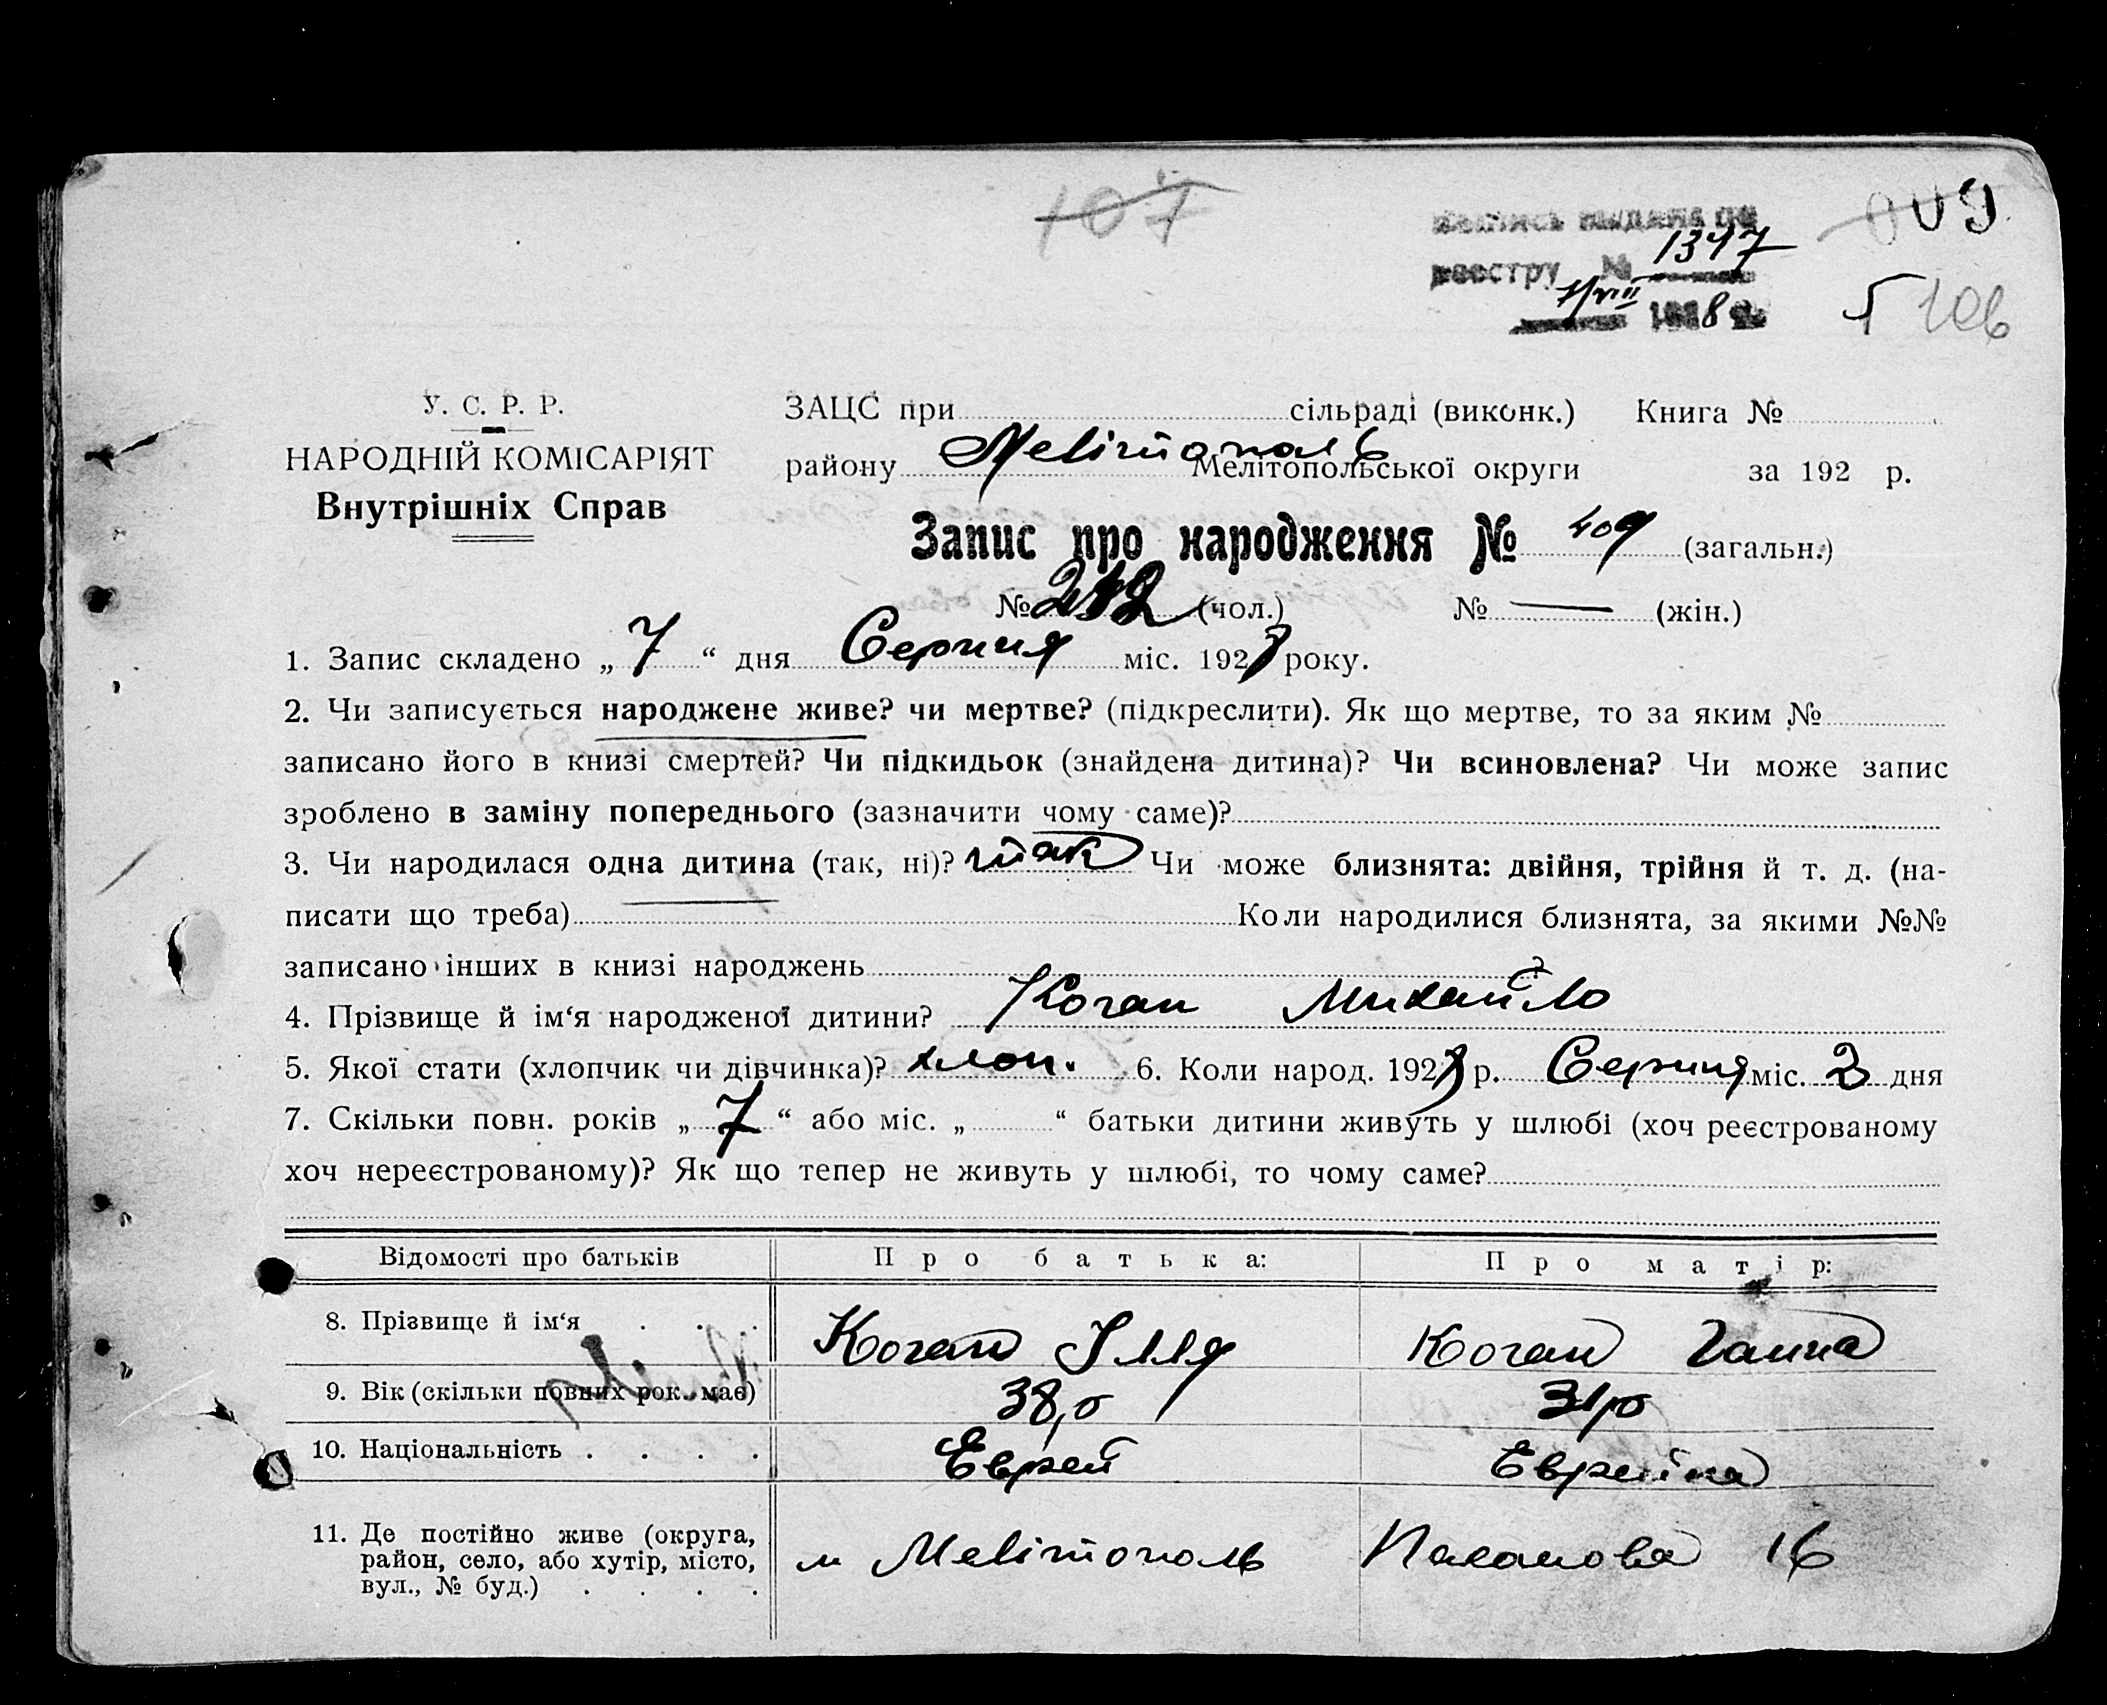 107
009
1347
реестру №
7/VIII 8
5 106
У. С. Р. Р.
НАРОДНІЙ КОМІСАРІЯТ
Внутрішніх Справ
ЗАЦС при сільраді (виконк.) Книга №
району Мелітополь Мелітопольської округи за 192 р.
Запис про народження № 409 (загальн.)
№ 212 (чол.) № — (жін.)
1. Запис складено „ 7 “ дня Серпня міс. 1928 року.
2. Чи записується народжене живе? чи мертве? (підкреслити). Як що мертве, то за яким №
записано його в книзі смертей? Чи підкидьок (знайдена дитина)? Чи всиновлена? Чи може запис
зроблено в заміну попереднього (зазначити чому саме)?
3. Чи народилася одна дитина (так, ні)? так Чи може близнята: двійня, трійня й т. д. (на-
писати що треба) Коли народилися близнята, за якими №№
записано інших в книзі народжень ?
4. Прізвище й ім‘я народженої дитини? Коган Михайло
5. Якої стати (хлопчик чи дівчинка)? хлоп. 6. Коли народ. 1928 р. Серпня міс. 2 дня
7. Скільки повн. років „ 7 “ або міс. „ “ батьки дитини живуть у шлюбі (хоч реєстрованому
хоч нереєстрованому)? Як що тепер не живуть у шлюбі, то чому саме?
Відомості про батьків Про батька: Про матір:
8. Прізвище й ім‘я . . . Коган Ілля Коган Ганна
9. Вік (скільки повних рок. має) 38 р 31 р
10. Національність . . . . Еврей Еврейка
11. Де постійно живе (округа,
район, село, або хутір, місто,
вул., № буд.) . . . .
м Мелітополь 16